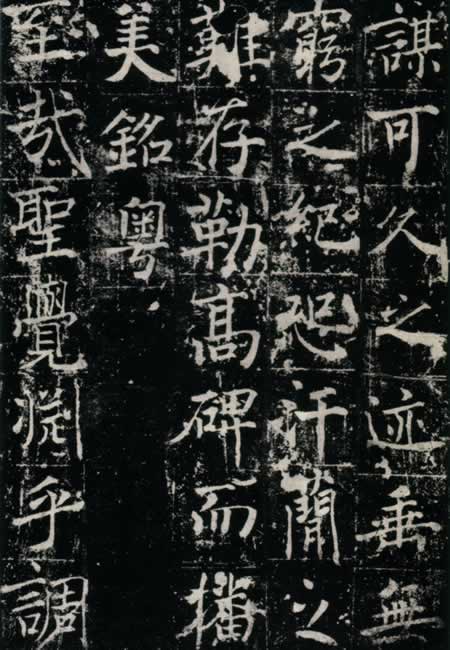 謀可久之迹垂無
窮之紀恐汗簡之
難存勒高碑而播
美銘粵
至哉聖覺渕乎調